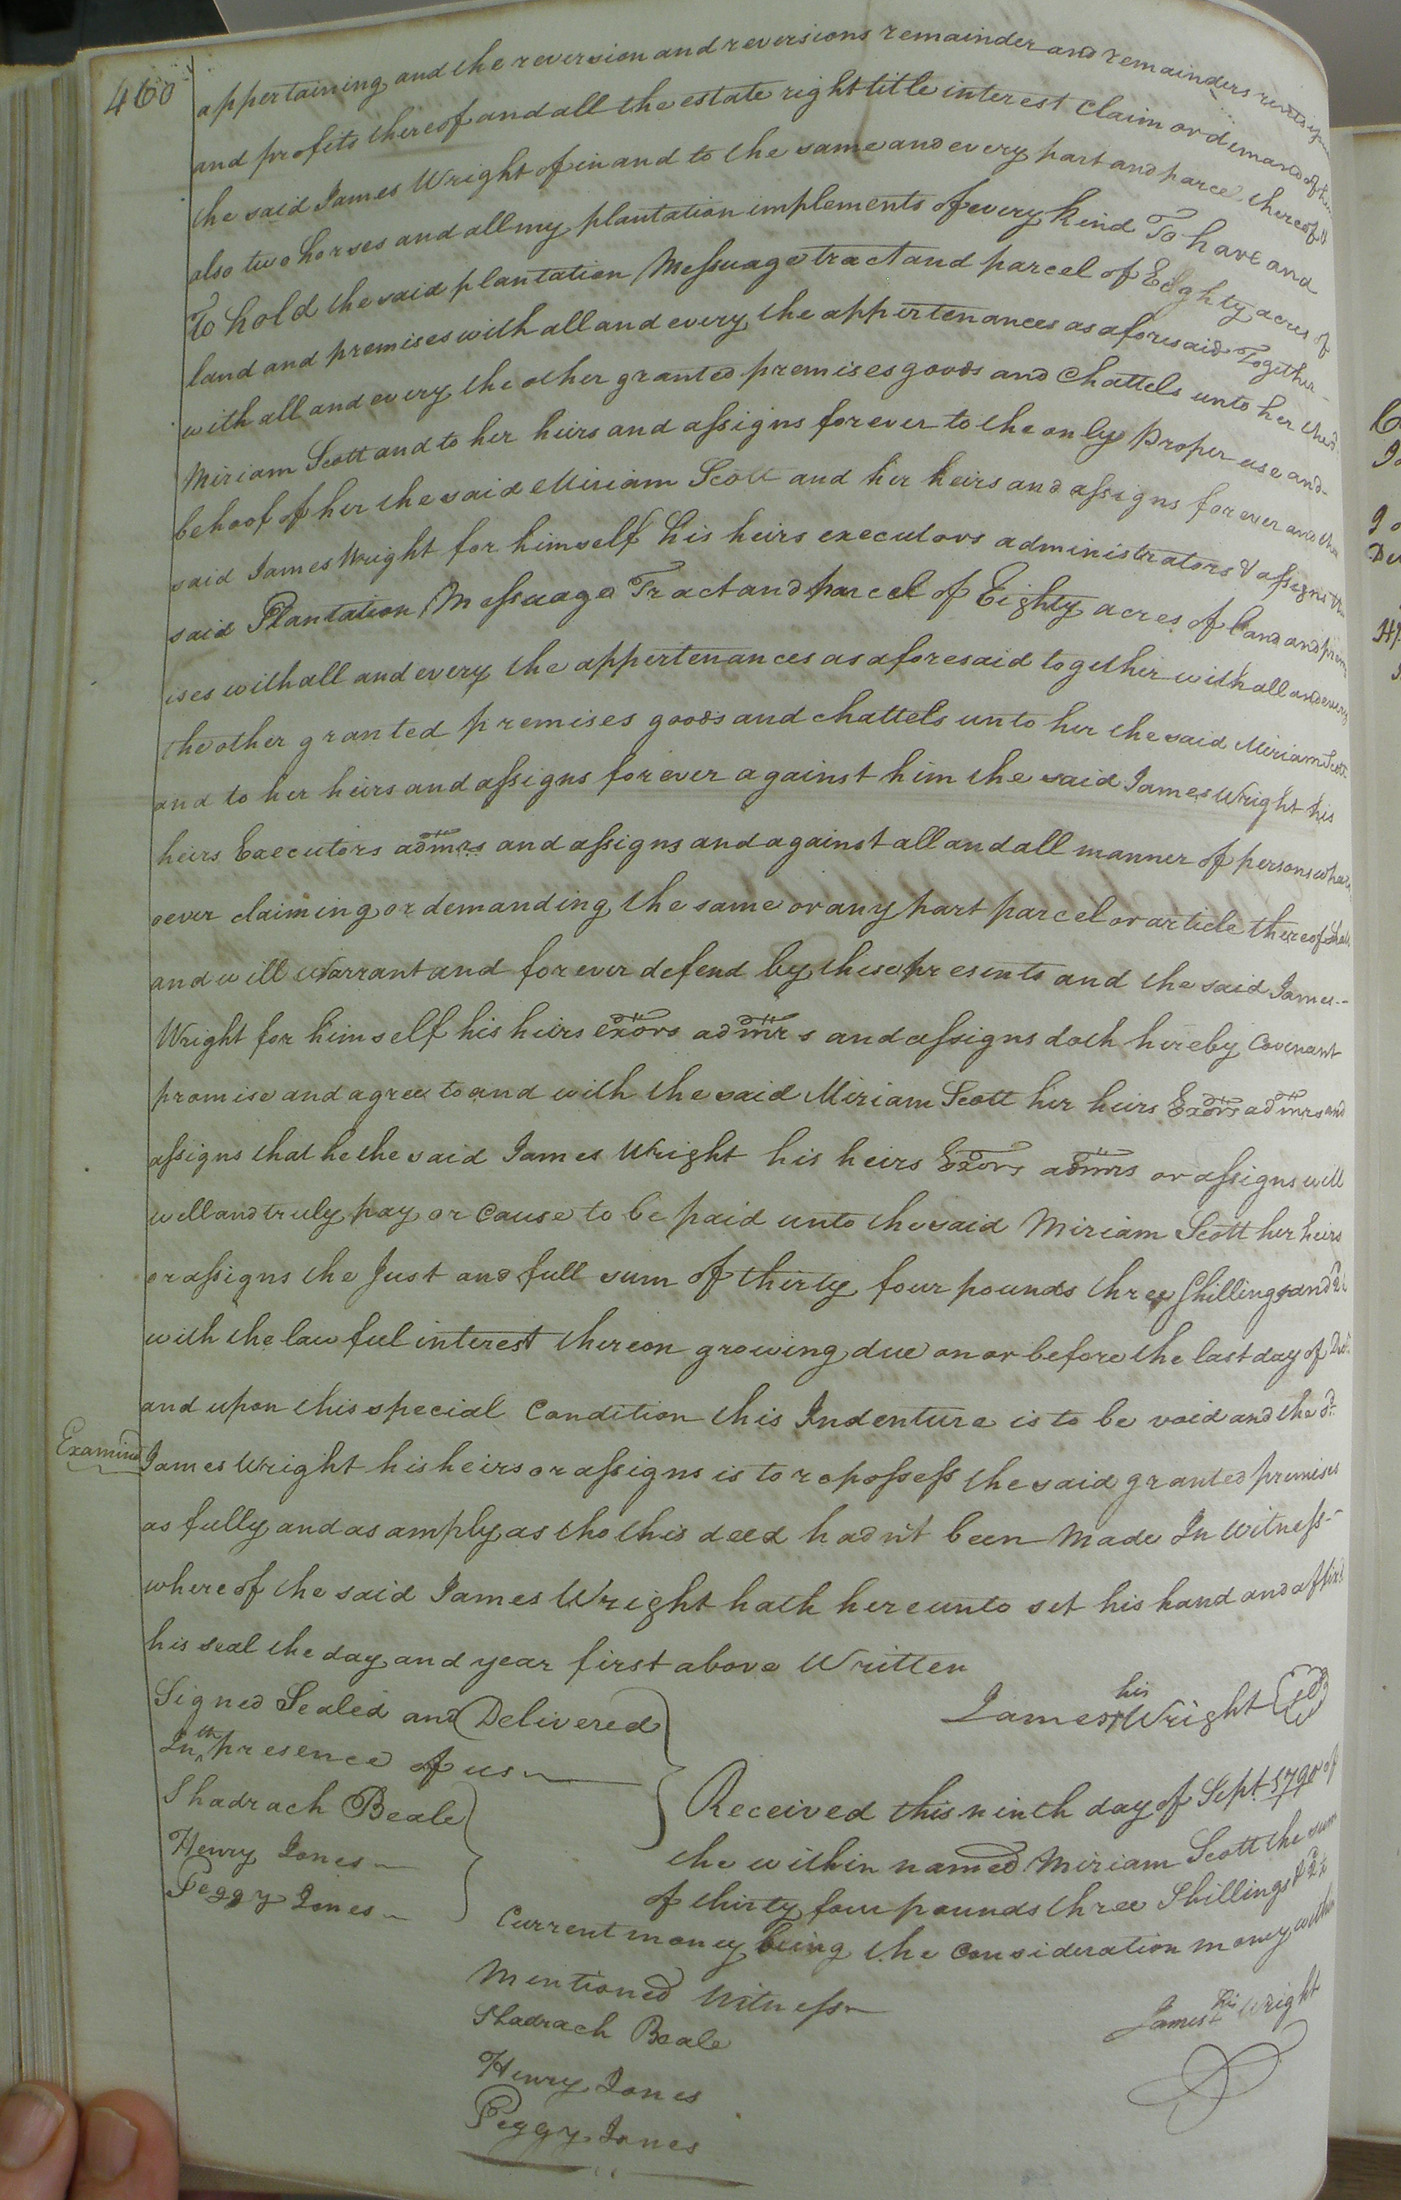 460
appertaining and the reversion and reversions remainder and remainders rents
and profits thereof and all the estate right title interest Claim or demand of
the said James Wright of in and to the same and every part and parcel thereof
also two horses and all my plantation implements of every kind To have and
To hold the said plantation Messuage tract and parcel of Eighty acres of
land and premises with all and every the appertenances as aforesaid Together
with all and every the other granted premises goods and Chattels unto her the sd
Miriam Scott and to her heirs and assigns forever to the only Proper use and
behoof of her the said Miriam Scott and her heirs and assigns forever and the
said James Wright for himself his heirs executors administrators & assigns the
said Plantation Messuage Tract and parcel of Eighty acres of land and prem
ises with all and every the appertenances as aforesaid together with all and every
the other granted premises goods and chattels unto her the said Miriam Scott
and to her heirs and assigns forever against him the said James Wright his
heirs Executors admrs and assigns and against all and all manner of persons whats
oever claiming or demanding the same or any part parcel or article thereof shall
and will Warrant and forever defend by these presents and the said James
Wright for himself his heirs exors admrs and assigns doth hereby Covenant
promise and agree to and with the said Miriam Scott her heirs Exors admrs and
assigns that he the said James Wright his heirs Exors admrs or assigns will
well and truly pay or Cause to be paid unto the said Miriam Scott her heirs
or assigns the Just and full sum of thirty four pounds three Shillings and
with the lawful interest thereon growing due on or before the last day of
and upon this special Condition this Indenture is to be void and the sd
Examined
James Wright his heirs or assigns is to repossess the said granted premises
as fully and as amply as tho this deed hadn't been Made In Witness
whereof the said James Wright hath hereunto set his hand and affixd
his seal the day and year first above Written
Signed Sealed and Delivered
In the presence of us
his
James + Wright
Shadrach Beale
Henry Jones
Peggy Jones
Received this ninth day of Sept 1790 of
the within named Miriam Scott the sum
of thirty four pounds three Shillings &
Current money being the Consideration money within
Mentioned Witness
Shadrach Beale
Henry Jones
Peggy Jones
his
James + Wright